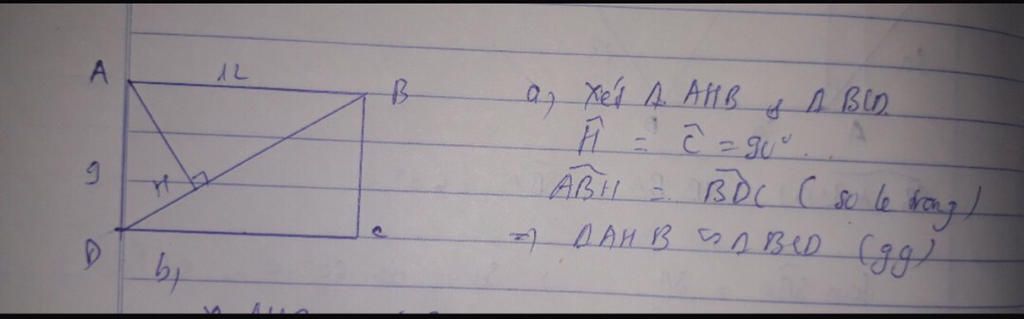 A 12 B
9
H
D C
a, Xét Δ AHB & Δ BCD
Ĥ = Ĉ = 90°
ABH = BDC (so le trong)
=> Δ AHB ∽ Δ BCD (gg)
b,